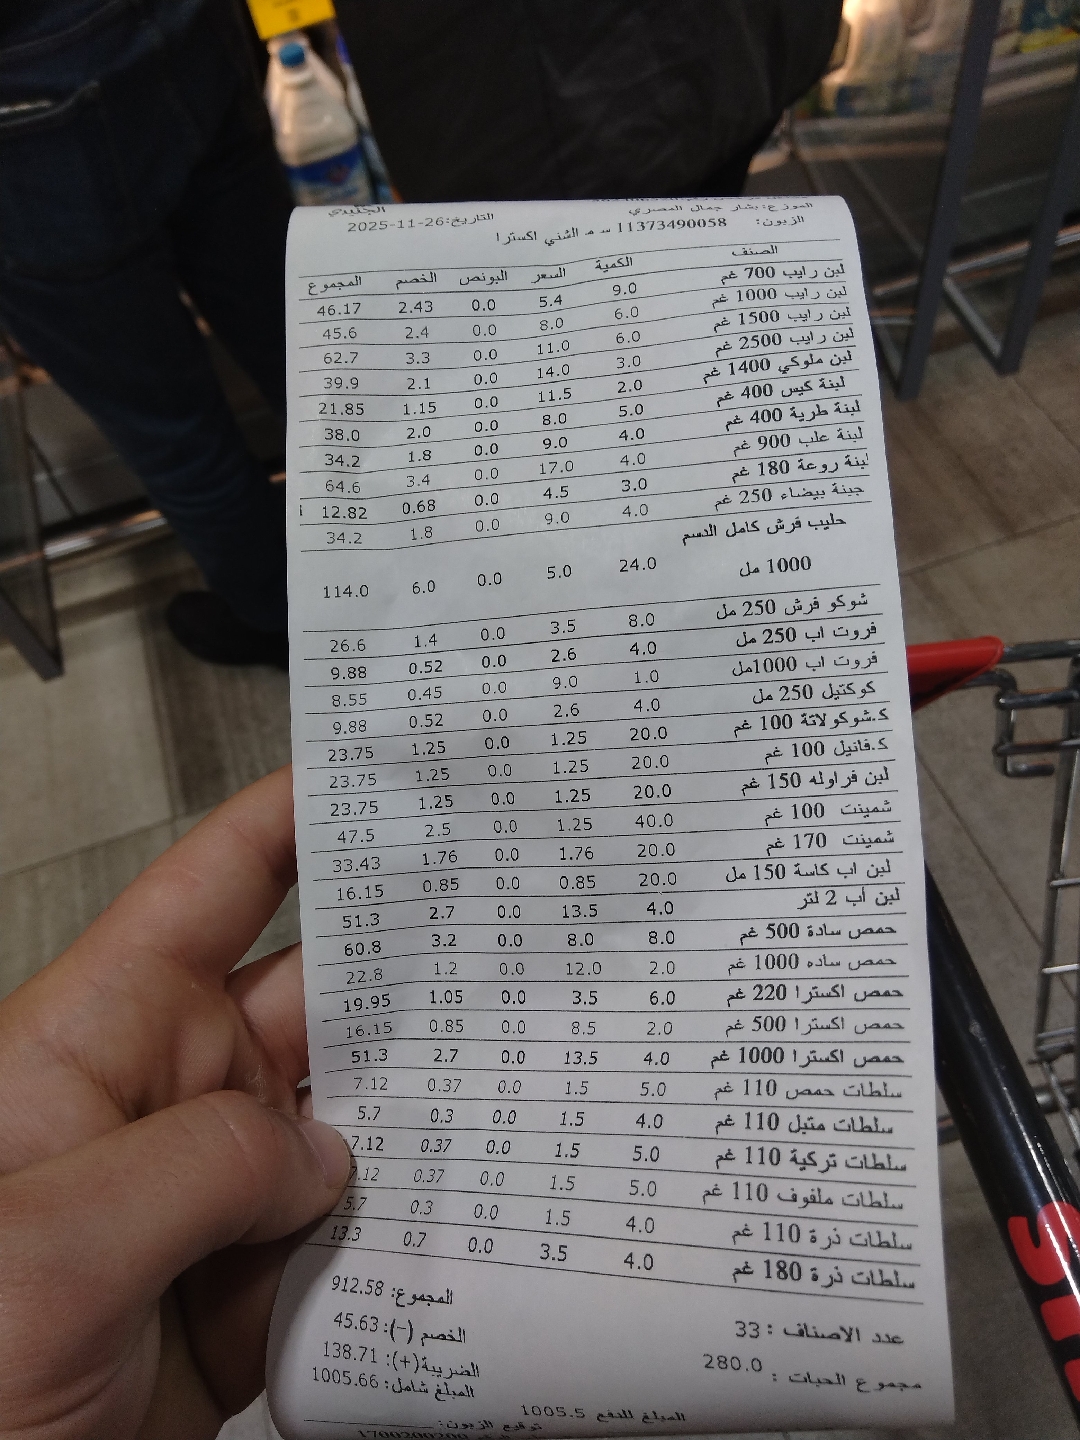 الموزع: بشار جمال المصري الجنيدي
الزبون: 11373490058 س م السُني اكسترا التاريخ:26-11-2025
الصنف الكمية السعر البونص الخصم المجموع
لبن رايب 700 غم 9.0 5.4 0.0 2.43 46.17
لبن رايب 1000 غم 6.0 8.0 0.0 2.4 45.6
لبن رايب 1500 غم 6.0 11.0 0.0 3.3 62.7
لبن رايب 2500 غم 3.0 14.0 0.0 2.1 39.9
لبن ملوكي 1400 غم 2.0 11.5 0.0 1.15 21.85
لبنة كيس 400 غم 5.0 8.0 0.0 2.0 38.0
لبنة طرية 400 غم 4.0 9.0 0.0 1.8 34.2
لبنة علب 900 غم 4.0 17.0 0.0 3.4 64.6
لبنة روعة 180 غم 3.0 4.5 0.0 0.68 12.82
جبنة بيضاء 250 غم 4.0 9.0 0.0 1.8 34.2
حليب فرش كامل الدسم
1000 مل 24.0 5.0 0.0 6.0 114.0
شوكو فرش 250 مل 8.0 3.5 0.0 1.4 26.6
فروت اب 250 مل 4.0 2.6 0.0 0.52 9.88
فروت اب 1000مل 1.0 9.0 0.0 0.45 8.55
كوكتيل 250 مل 4.0 2.6 0.0 0.52 9.88
ك.شوكولاتة 100 غم 20.0 1.25 0.0 1.25 23.75
ك.فانيل 100 غم 20.0 1.25 0.0 1.25 23.75
لبن فراوله 150 غم 20.0 1.25 0.0 1.25 23.75
شمينت 100 غم 40.0 1.25 0.0 2.5 47.5
شمينت 170 غم 20.0 1.76 0.0 1.76 33.43
لبن اب كاسة 150 مل 20.0 0.85 0.0 0.85 16.15
لبن أب 2 لتر 4.0 13.5 0.0 2.7 51.3
حمص سادة 500 غم 8.0 8.0 0.0 3.2 60.8
حمص ساده 1000 غم 2.0 12.0 0.0 1.2 22.8
حمص اكسترا 220 غم 6.0 3.5 0.0 1.05 19.95
حمص اكسترا 500 غم 2.0 8.5 0.0 0.85 16.15
حمص اكسترا 1000 غم 4.0 13.5 0.0 2.7 51.3
سلطات حمص 110 غم 5.0 1.5 0.0 0.37 7.12
سلطات متبل 110 غم 4.0 1.5 0.0 0.3 5.7
سلطات تركية 110 غم 5.0 1.5 0.0 0.37 7.12
سلطات ملفوف 110 غم 5.0 1.5 0.0 0.37 7.12
سلطات ذرة 110 غم 4.0 1.5 0.0 0.3 5.7
سلطات ذرة 180 غم 4.0 3.5 0.0 0.7 13.3
المجموع: 912.58
عدد الاصناف : 33 الخصم (-): 45.63
مجموع الحبات : 280.0 الضريبة(+): 138.71
المبلغ شامل: 1005.66
المبلغ للدفع 1005.5
توقيع الزبون:
1700200200